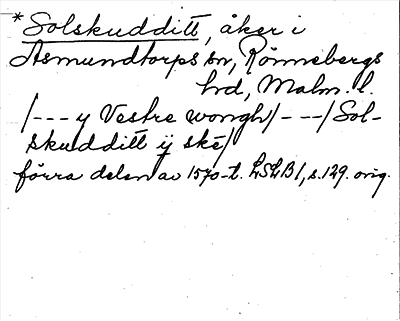 *Solskudditt, åker i
Asmundtorps sn, Rönnebergs
hrd, Malm. l.
/--- y Vestre wongh/---/ Sol-
skudditt ÿ ské/
förra delen av 1570-t. LSLB 1, s. 129. orig.